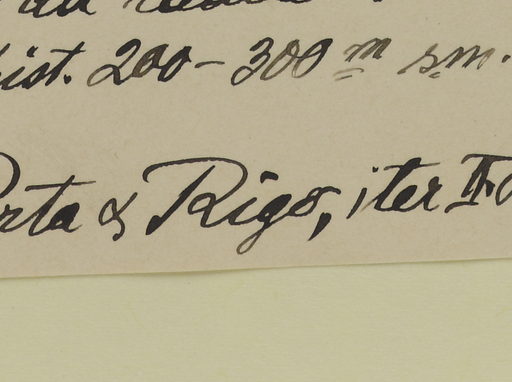 ist. 200-300 m s.m.
rta & Rigo, iter II